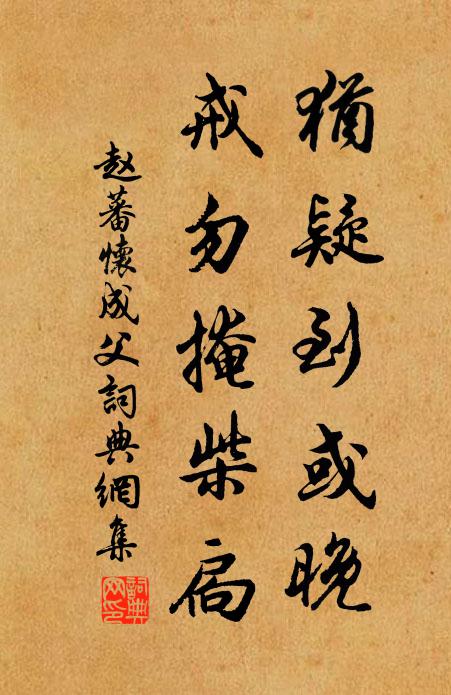 猶疑到或晚
戒勿掩柴扃
赵蕃懷成父詞典網集
詞典
网印